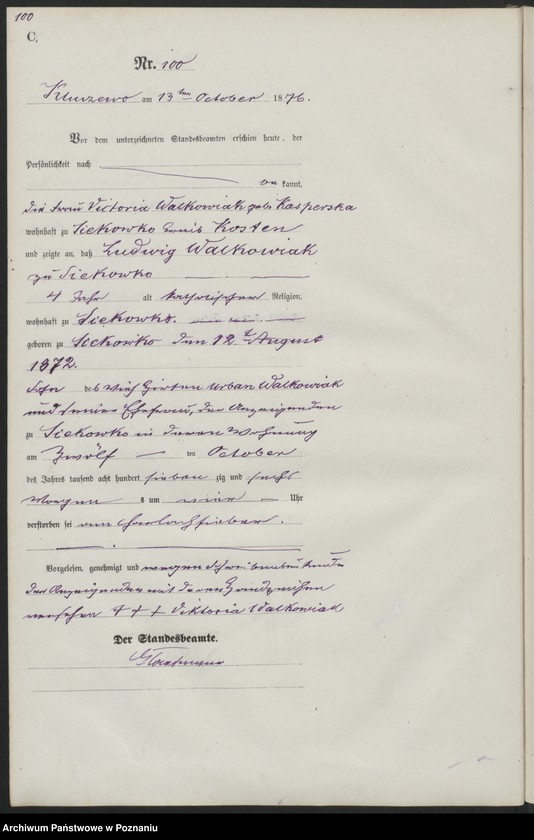 100
C.
Nr. 100
Kluczewo am 13ten October 1876.
Vor dem unterzeichneten Standesbeamten erschien heute, der
Persönlichkeit nach
be kannt,
die Frau Victoria Walkowiak geb. Kasperska
wohnhaft zu Siekowko Kreis Kosten
und zeigte an, daß Ludwig Walkowiak
zu Siekowko
4 Jahr alt katholischer Religion,
wohnhaft zu Siekowko.
geboren zu Siekowko den 12t August
1872.
Sohn des Vieh Hirten Urban Walkowiak
und seiner Ehefrau, der Anzeigenden
zu Siekowko in deren Wohnung
am Zwölf ten October
des Jahres tausend acht hundert sieben zig und sechs
Morgen s um vier Uhr
verstorben sei am Scharlachfieber.
Vorgelesen, genehmigt und wegen Schreibensunkunde
der Anzeigenden mit deren Handzeichen
versehen + + + Viktoria Walkowiak
Der Standesbeamte.
Archiwum Państwowe w Poznaniu